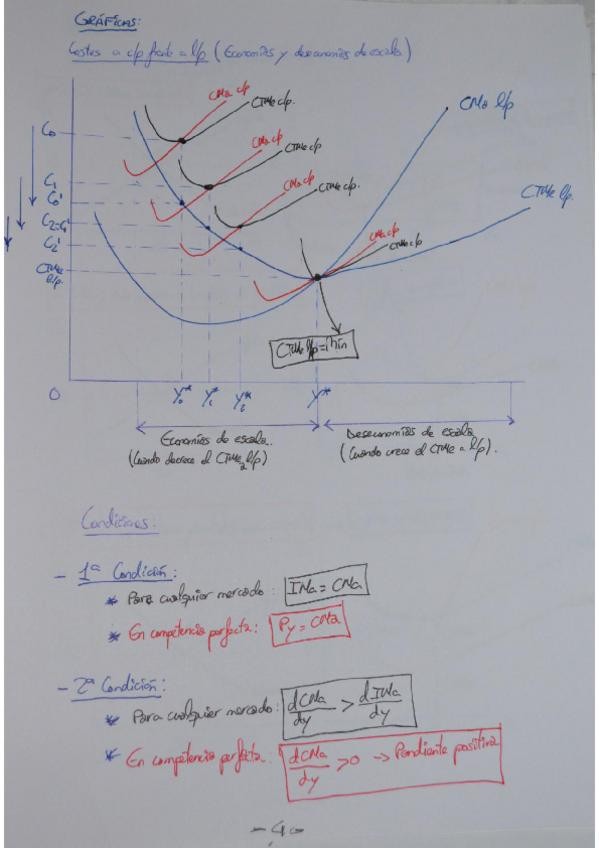 GRÁFICAS:
Costes a c/p frente a l/p (Economías y deseconomías de escala)
CMa c/p
CTMe c/p.
CMa l/p
C₀
CMa c/p
CTMe c/p
C₁
CMa c/p
CTMe c/p.
CTMe l/p.
C₀'
C₂=C₁'
C₂'
CMa c/p
CTMe c/p
CTMe l/p.
CTMe l/p=Mín
O
Y₀* Y₁* Y₂* Y*
Economías de escala. Deseconomías de escala
(Cuando decrece el CTMe a l/p) (Cuando crece el CTMe a l/p).
Condiciones:
- 1ª Condición:
* Para cualquier mercado: IMa = CMa
* En competencia perfecta: Py = CMa
- 2ª Condición:
* Para cualquier mercado: dCMa/dy > dIMa/dy
* En competencia perfecta: dCMa/dy >0 → Pendiente positiva
- 4 -